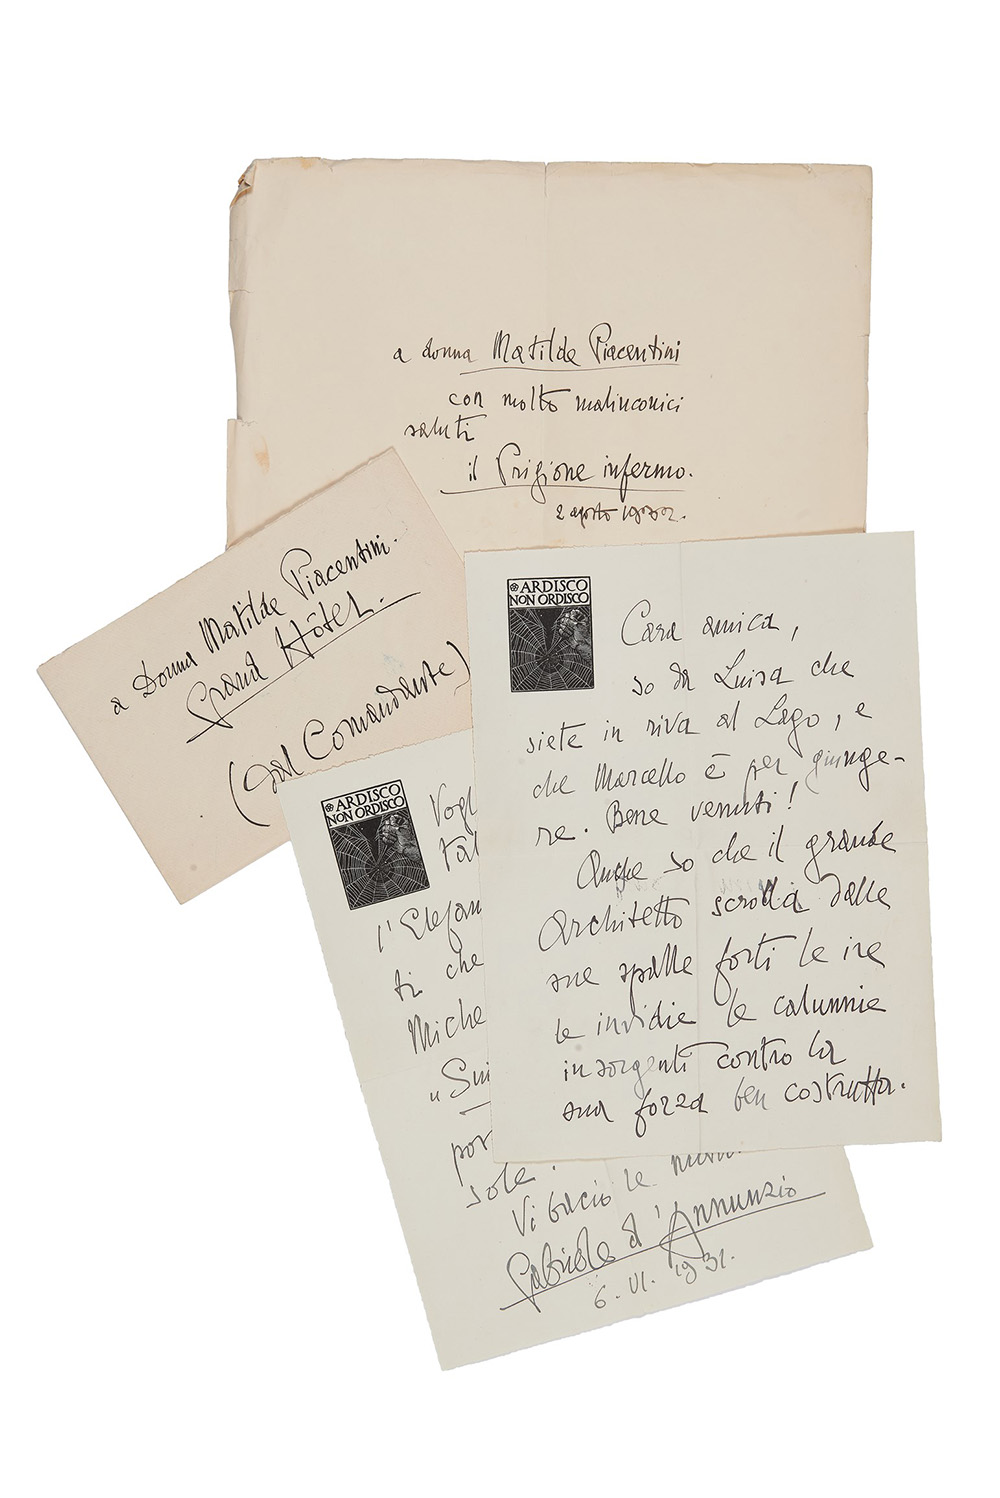 a donna Matilde Piacentini
con molto malinconici
saluti
il Prigione infermo.
2 agosto
a Donna Matilde Piacentini.
Grand Hôtel.
(dal Comandante)
ARDISCO
NON ORDISCO
Cara amica,
so da Luisa che
siete in riva al Lago, e
che Marcello è per giunge-
re. Bene venuti!
so che il grande
Architetto scrolla dalle
sue spalle forti le ire
le invidie le calunnie
insorgenti contro la
sua forza ben costrutta.
ARDISCO
NON ORDISCO
Vogl
l'Elefan
ti che
Miche
„Sui
por
sole.
Vi bacio le
Gabriele d'Annunzio
6. VI. 1931.